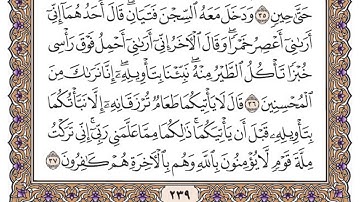 حَتَّىٰ حِينٍ ٣٥ وَدَخَلَ مَعَهُ ٱلسِّجْنَ فَتَيَانِۖ قَالَ أَحَدُهُمَآ إِنِّيٓ
أَرَىٰنِيٓ أَعْصِرُ خَمْرٗاۖ وَقَالَ ٱلْأٓخَرُ إِنِّيٓ أَرَىٰنِيٓ أَحْمِلُ فَوْقَ رَأْسِي
خُبْزٗا تَأْكُلُ ٱلطَّيْرُ مِنْهُۖ نَبِّئْنَا بِتَأْوِيلِهِۦٓۖ إِنَّا نَرَىٰكَ مِنَ
ٱلْمُحْسِنِينَ ٣٦ قَالَ لَا يَأْتِيكُمَا طَعَامٞ تُرْزَقَانِهِۦٓ إِلَّا نَبَّأْتُكُمَا
بِتَأْوِيلِهِۦ قَبْلَ أَن يَأْتِيَكُمَاۚ ذَٰلِكُمَا مِمَّا عَلَّمَنِي رَبِّيٓۚ إِنِّي تَرَكْتُ
مِلَّةَ قَوْمٖ لَّا يُؤْمِنُونَ بِٱللَّهِ وَهُم بِٱلْأٓخِرَةِ هُمْ كَٰفِرُونَ ٣٧
٢٣٩